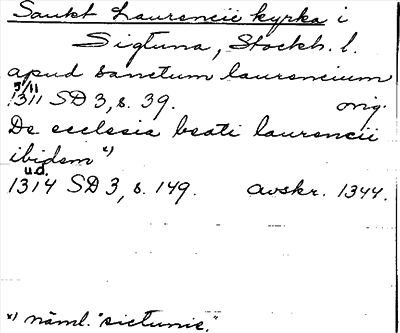 Sankt Laurencii kyrka i
Sigtuna, Stockh. l.
apud sanctum laurencium
5/11
1311 SD 3, s. 39. orig.
De ecclesia beati laurencii
ibidem x)
u.d.
1314 SD 3, s. 149. avskr. 1344.
x) näml. "sictunie."